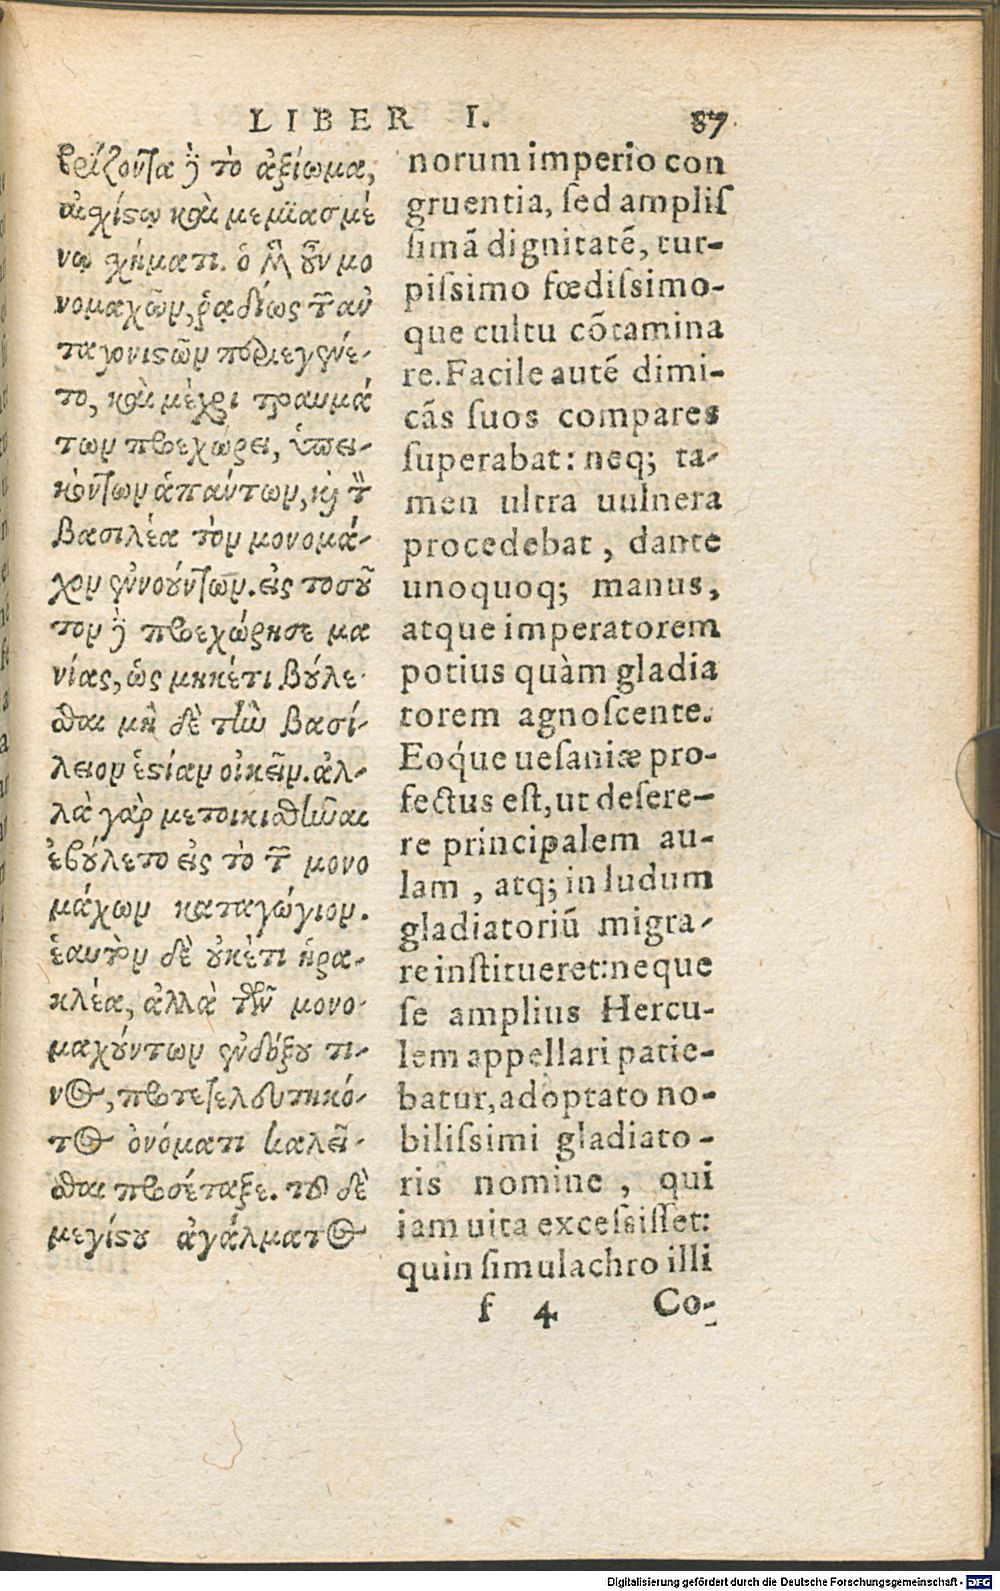 LIBER I. 87
βρίζοντα ἢ τὸ ἀξίωμα,
αἰσχίστῳ καὶ μεμιασμέ
νῳ σχήματι. ὁ μὲν οὖν μο
νομαχῶν, ῥᾳδίως τῶν αὐ
ταγονιστῶν περιεγίνε-
το, καὶ μέχρι τραυμά
των προεχώρει, ὑπει-
κόντων ἁπάντων, καὶ τὸν
βασιλέα τὸν μονομά-
χον ἐννοούντων. εἰς τοσοῦ
τον ἢ προεχώρησε μα
νίας, ὡς μηκέτι βούλε-
σθαι μηδὲ τὴν βασί-
λειον ἑστίαν οἰκεῖν. ἀλ-
λὰ γὰρ μετοικισθῆναι
ἐβούλετο εἰς τὸ τῶν μονο
μάχων καταγώγιον.
ἑαυτὸν δὲ οὐκέτι ἡρα-
κλέα, ἀλλὰ τῶν μονο-
μαχούντων ἐνδόξου τι-
νος, προτετελευτηκό-
τος ὀνόματι καλεῖ-
σθαι προσέταξε. τοῦ δὲ
μεγίστου ἀγάλματος
norum imperio con
gruentia, sed amplis
simã dignitatẽ, tur-
pissimo fœdissimo-
que cultu cõtamina
re. Facile autẽ dimi-
cãs suos compares
superabat: neq; ta-
men ultra uulnera
procedebat, dante
unoquoq; manus,
atque imperatorem
potius quàm gladia
torem agnoscente.
Eoq́ue uesaniæ pro-
fectus est, ut desere-
re principalem au-
lam, atq; in ludum
gladiatoriũ migra-
re institueret: neque
se amplius Hercu-
lem appellari patie-
batur, adoptato no-
bilissimi gladiato-
ris nomine, qui
iam uita excessisset:
quin simulachro illi
f 4 Co-
Digitalisierung gefördert durch die Deutsche Forschungsgemeinschaft - DFG